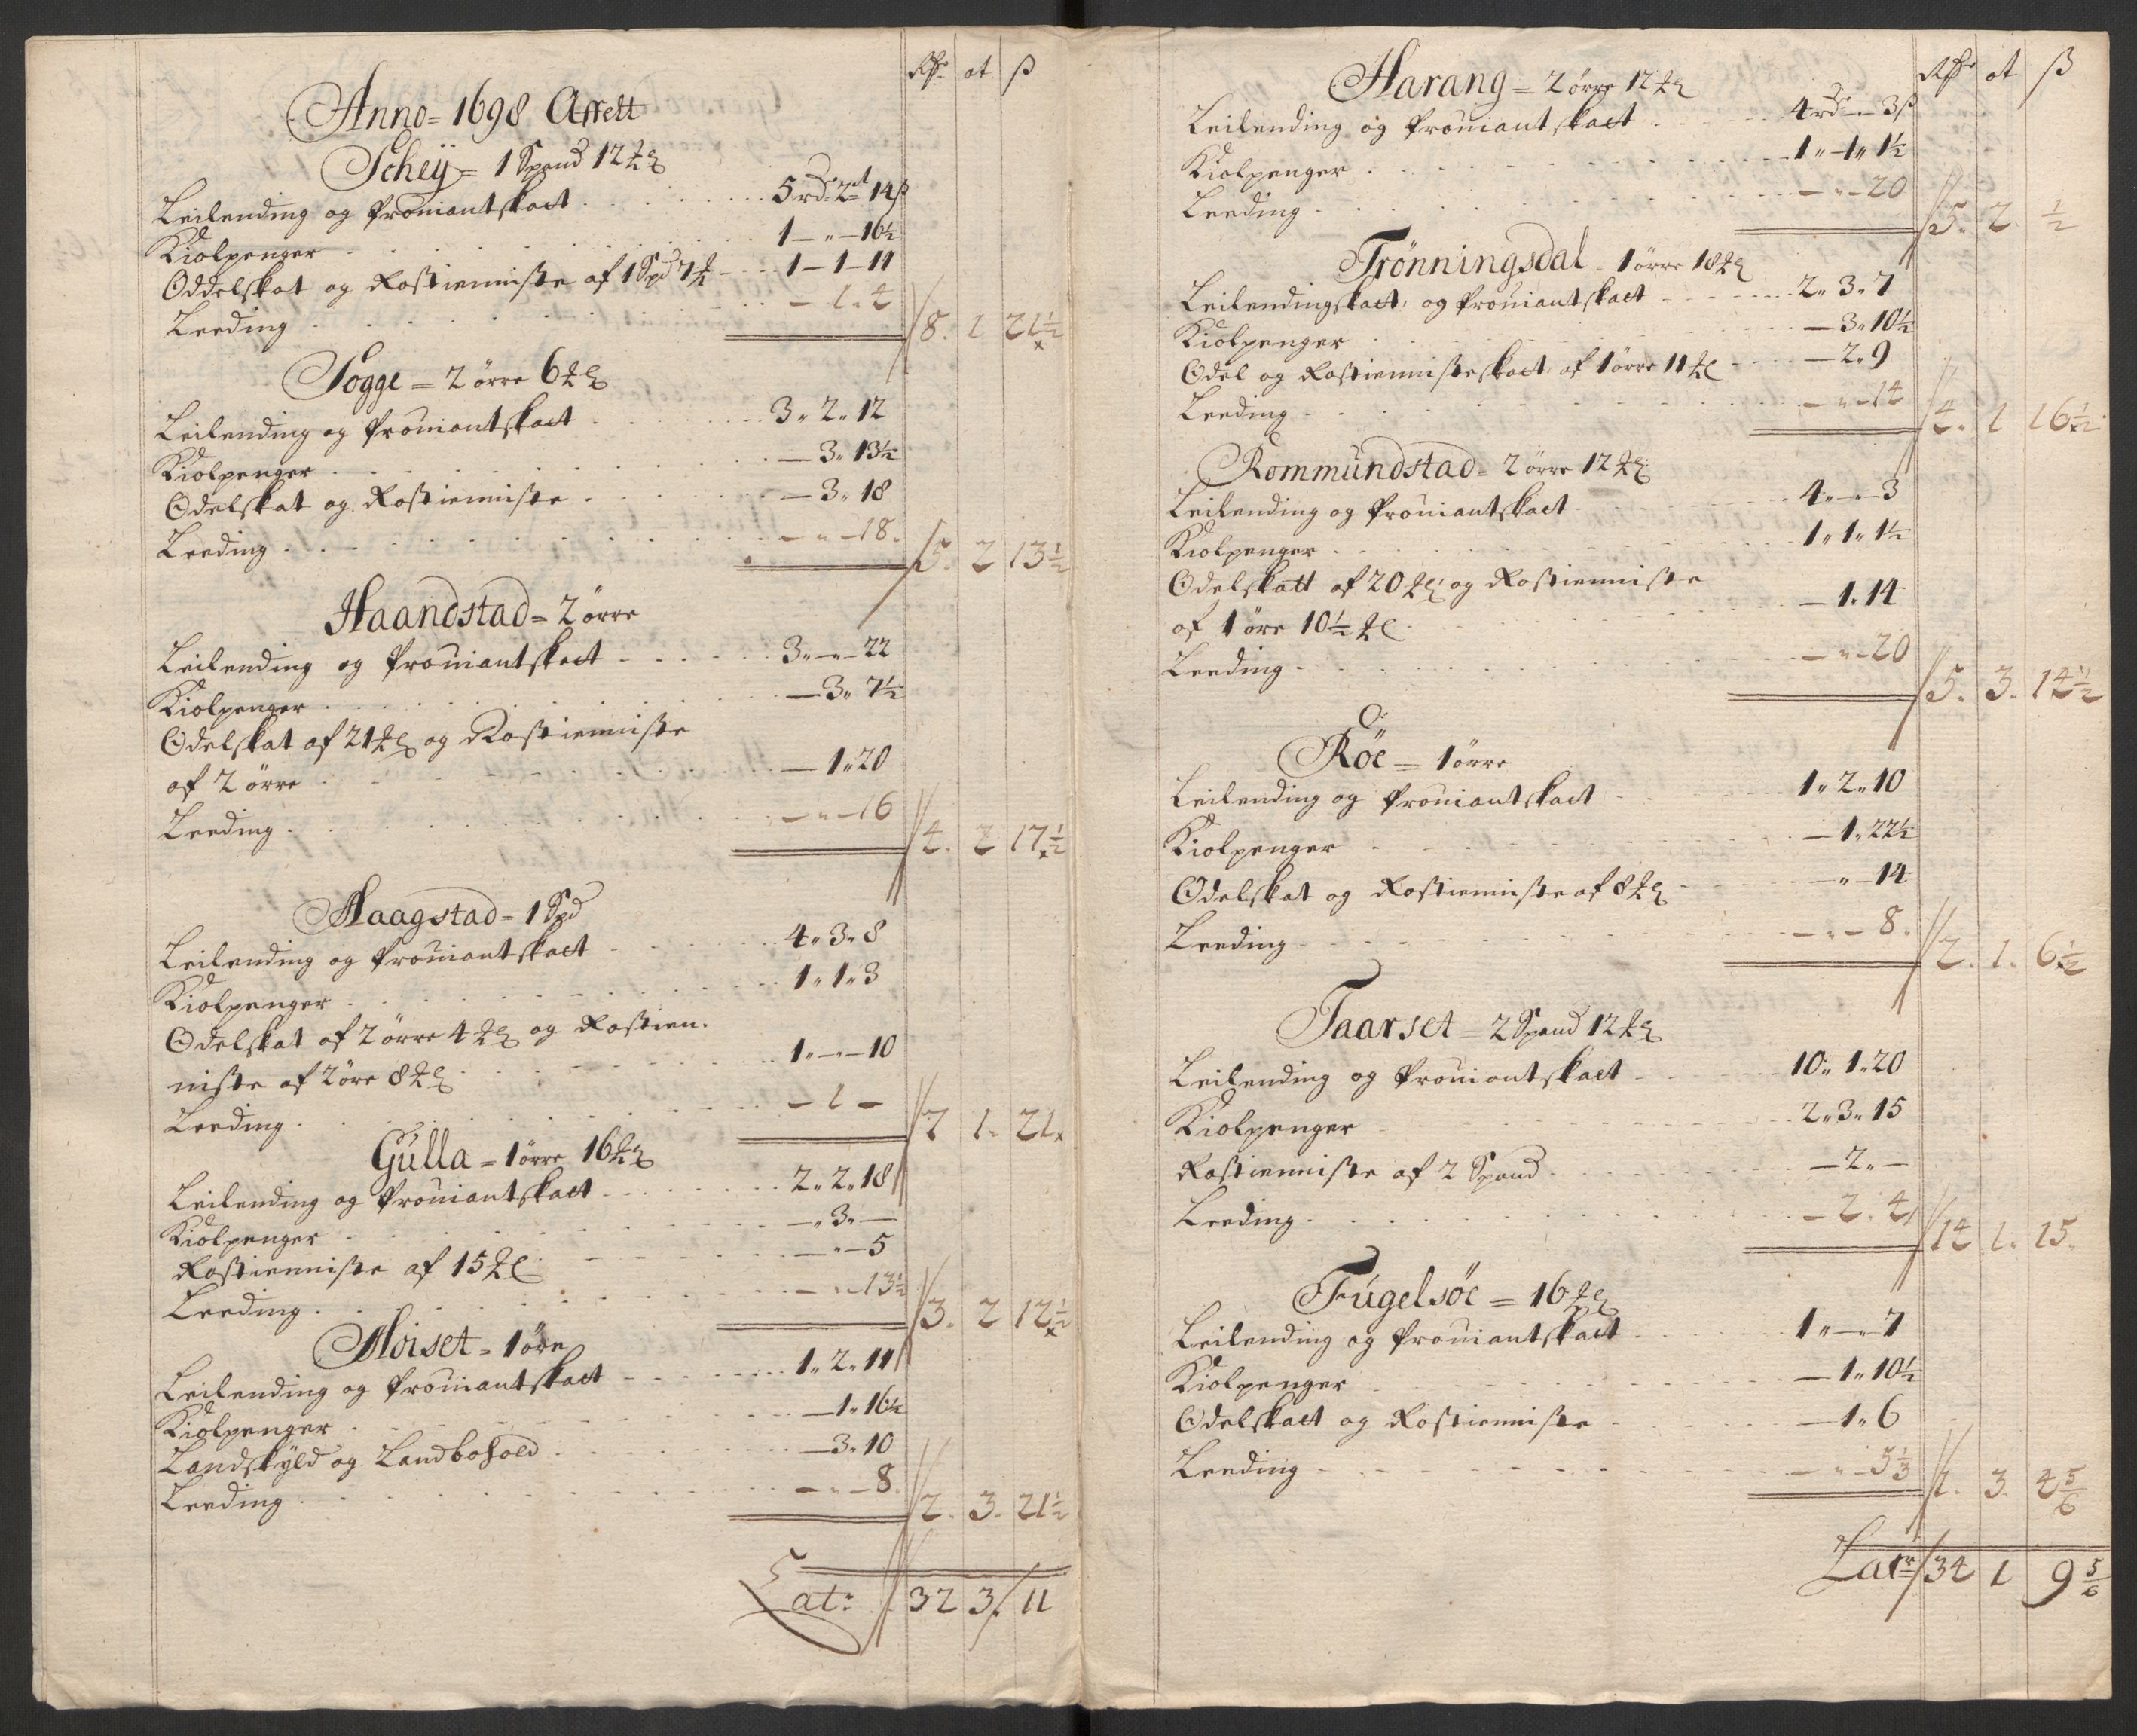 Rdr | ot | ß
Anno = 1698 Affelt
Scheÿ = 1 Spand 12
Leilending og Prouiantskact 5 rdr 2 ot 14 ß
Kiolpenger 1 — " — 16½
Oddelskat og Rostienniste af 1 Spd 7 1 — 1 — 11
Leeding — 1 . 4 8. 1 21½
Sogge = 2 örre 6
Leilending og Prouiantskact 3 " 2 " 12
Kiolpenger — 3 " 13½
Odelskat og Rostienniste — 3 " 18
Leeding — " — 18. 5. 2 13½
Haandstad = 2 örre
Leilending og Prouiantskact 3 " — " — 22
Kiolpenger — 3 " 7½
Odelskat af 21 og Rostienniste
af 2 örre — 1 " 20
Leeding — " — 16 4. 2 17½
Haagstad = 1 Spd
Leilending og Prouiantskact 4 " 3 " 8
Kiolpenger 1 " 1 " 3
Odelskat af 2 örre 4 og Rostien.
niste af 2 öre 8 1 " — " — 10
Leeding — 1 — 7 1. 21
Gulla = 1 örre 16
Leilending og Prouiantskact 2 " 2 " 18
Kiolpenger — " 3 " —
Rostienniste af 15 — " — 5
Leeding — " — 13½ 3. 2 12½
Moiset = 1 öre
Leilending og Prouiantskact 1 " 2 " 11
Kiolpenger — 1 " 16½
Landskyld og Landbohold — 3 " 10
Leeding — " — 8. 2. 3. 21½
Latr 32 3. 11
Rdr | ot | ß
Harang = 2 örre 12
Leilending og Prouiantskact 4 rdr — " — 3 ß
Kiolpenger 1 " 1 " 1½
Leeding — " — 20 5. 2. ½
Trönningsdal = 1 örre 18
Leilendingskact, og Prouiantskact 2 " 3 " 7
Kiolpenger — 3 " 10½
Odel og Rostiennisteskact af 1 örre 11 — 2 " 9
Leeding — " — 14 4. 1 16½
Rommundstad = 2 örre 12
Leilending og Prouiantskact 4 " — " — 3
Kiolpenger 1 " 1 " 1½
Odelskatt af 20 og Rostienniste
af 1 öre 10½ — 1. 14
Leeding — " — 20 5. 3. 14½
Röe = 1 örre
Leilending og Prouiantskact 1 " 2 " 10
Kiolpenger — 1 " 22½
Odelskat og Rostienniste af 8 — " — 14
Leeding — " — 8. 2. 1. 6½
Taarset = 2 Spand 12
Leilending og Prouiantskact 10 " 1 " 20
Kiolpenger 2 " 3 " 15
Rostienniste af 2 Spand — 2 " —
Leeding — 2. 4 14 1. 15.
Fugelsöe = 16
Leilending og Prouiantskact 1 " — " 7
Kiolpenger — 1 " 10½
Odelskact og Rostienniste — 1 " 6
Leeding — " — 5⅓ 1. 3. 4 5/6
Latr 34 1 9 5/6